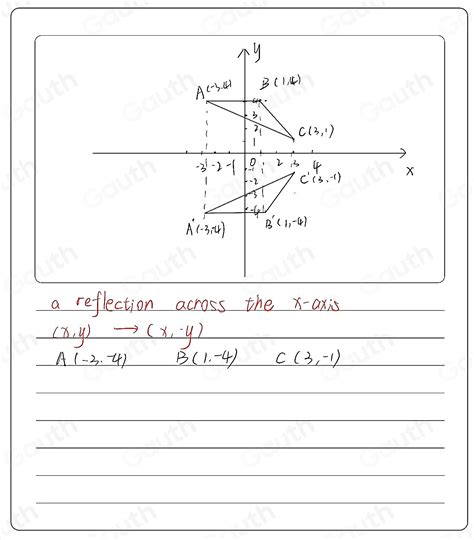 y
A(-3,4)
B(1,4)
4
3
2
1
C(3,1)
-3 -2 -1 0 2 3 4
x
-1
-2
-3
-4
C'(3,-1)
A'(-3,-4)
B'(1,-4)
a reflection across the x-axis
(x,y) → (x,-y)
A(-3,-4) B(1,-4) C(3,-1)
Gauth